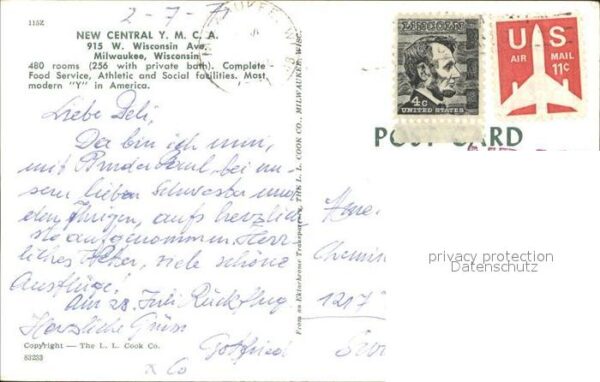 115Z
2-7-7
NEW CENTRAL Y. M. C. A.
915 W. Wisconsin Ave.
Milwaukee, Wisconsin
480 rooms (256 with private bath). Complete
Food Service, Athletic and Social facilities. Most
modern "Y" in America.
Liebe Deli,
Da bin ich nun,
mit Bruder Paul, bei un-
serer lieben Schwester und
den Ihrigen, aufs herzlich-
ste aufgenommen. Herr-
liches Wetter, viele schöne
Ausflüge!
Am 28. Juli Rückflug.
Herzliche Grüsse
Gottfried
x Co
Copyright — The L. L. Cook Co.
83233
From an Ektachrome Transparency, THE L. L. COOK CO., MILWAUKEE, WISC.
LINCOLN
4c
UNITED STATES
US
AIR MAIL
11c
POST CARD
Chemin
1217
privacy protection
Datenschutz